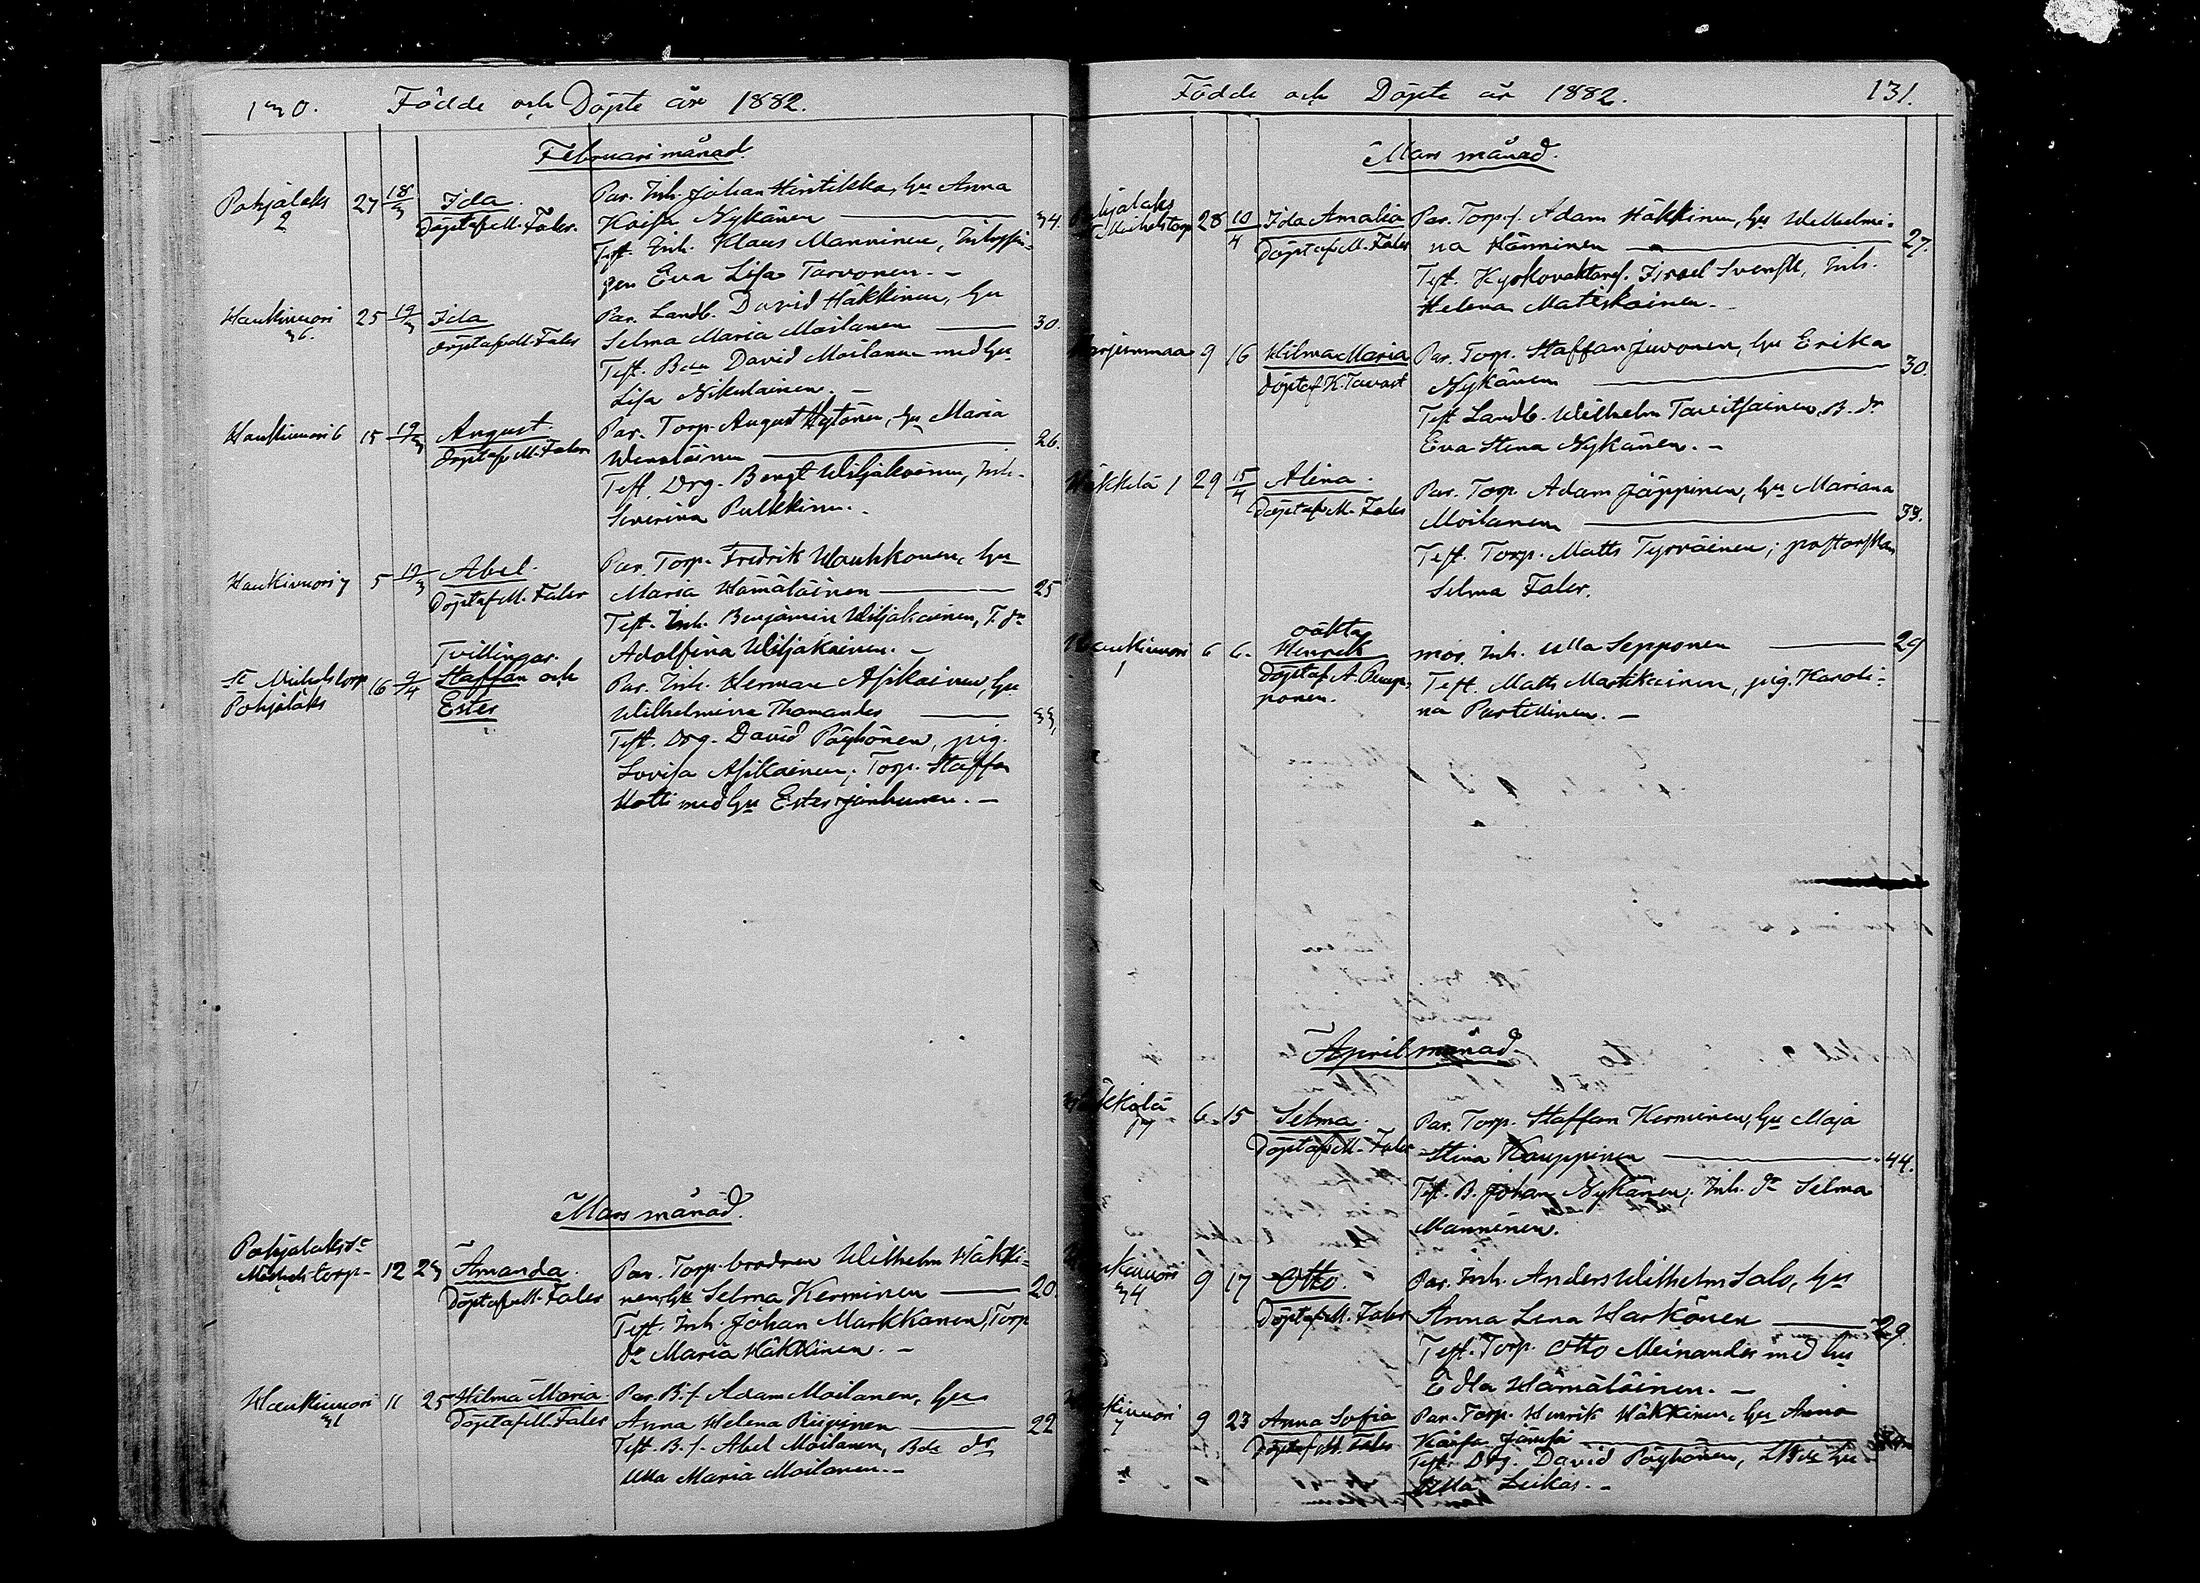 130. Födde och Döpte år 1882.
Februari månad.
Pohjalaks 2 27 18/3 Ida. Par. Inh. Johan Hintikka, hu Anna
Döpt af M. Faler. Kaisa Nykänen 34.
Test. Inh. Klaus Manninen, Inhysin-
gen Eva Lisa Tarvonen. –
Haukivuori 36. 25 19/3 Ida Par. Landb. David Häkkinen, hu
döpt af M. Faler Selma Maria Moilanen 30.
Test. Bdn David Moilanen med hu
Lisa Nikulainen. –
Haukivuori 6 15 19/3 August. Par. Torp. August Hytönen, hu Maria
döpt af M. Faler 26.
Test. Drg. Bengt Wiljakainen, Inh.
Severina Pulkkinen.
Haukivuori 7 5 19/3 Abel. Par. Torp. Fredrik Wauhkonen, hu
Döpt af M. Faler Maria Hämäläinen 25
Test. Inh. Benjamin Wiljakainen, T. dr
Tvillingar. Adolfina Wiljakainen. –
St Michels torp 16 9/4 Staffan och Par. Inh. Herman Asikainen, hu
Pohjalaks Ester Wilhelmina Thomander 33,
Test. Drg. David Pöyhönen, pig.
Lovisa Asikainen; Torp. Staffan
Hotti med hu Ester Janhunen. –
Mars månad.
Pohjalaks St
Michels torp 12 23 Amanda. Par. Torp. brodren Wilhelm Häkki-
Döpt af M. Faler nen, hu Selma Kerminen 20.
Test. Inh. Johan Markkanen, Torp
dr Maria Häkkinen. –
Haukivuori 31 11 25 Hilma Maria. Par. B. f. Adam Moilanen, hu
Döpt af M. Faler Anna Helena 22
Test. B. f. Abel Moilanen, Bde dr
Ulla Maria Moilanen. –
Födde och Döpte år 1882. 131.
Mars månad.
Pohjalaks
Michelstorp 28 10/4 Ida Amalia Par. Torp. f. Adam Häkkinen, hu Wilhelmi-
Döpt af M. Faler na Hänninen 27.
Test. Kyrkovaktaref. Israel Svensk, Inh.
Helena Matiskainen. –
Harjunmaa 9 16 Hilma Maria Par. Torp. Staffan Juvonen, hu Erika
döpt af K. Tavast Nykänen 30.
Test. Landb. Wilhelm Tavitsainen, B. dr
Eva Stina Nykänen. –
Häkkilä 1 29 15/4 Alina. Par. Torp. Adam Jäppinen, hu Mariana
Döpt af M. Faler Moilanen 33.
Test. Torp. Matts Tyrväinen; pastorskan
Selma Faler.
oäkta
Haukivuori 1 6 6. Henrik mor. Inh. Ulla Sepponen 29
Döpt af A. Test. Matts Martikainen, pig. Karoli-
ponen. na Partetinen. –
April månad.
Häkkilä 17 6 15 Selma. Par. Torp. Staffan Kerminen, hu Maja
Döpt af M. Faler Stina Kauppinen 44.
Test. B. Johan Nykänen; Inh. dr Selma
Manninen.
Haukivuori 34 9 17 Otto. Par. Inh. Anders Wilhelm Salo, hu
Döpt af M. Faler Anna Lena Harkönen 29.
Test. Torp. Otto Meinander med hu
Edla Hämäläinen. –
Haukivuori 7 9 23 Anna Sofia Par. Torp. Henrik Häkkinen, hu Anna
Döpt af M. Faler Kaisa Jämsä
Test. Drg. David Pöyhönen, hu
Ulla Leikas. –